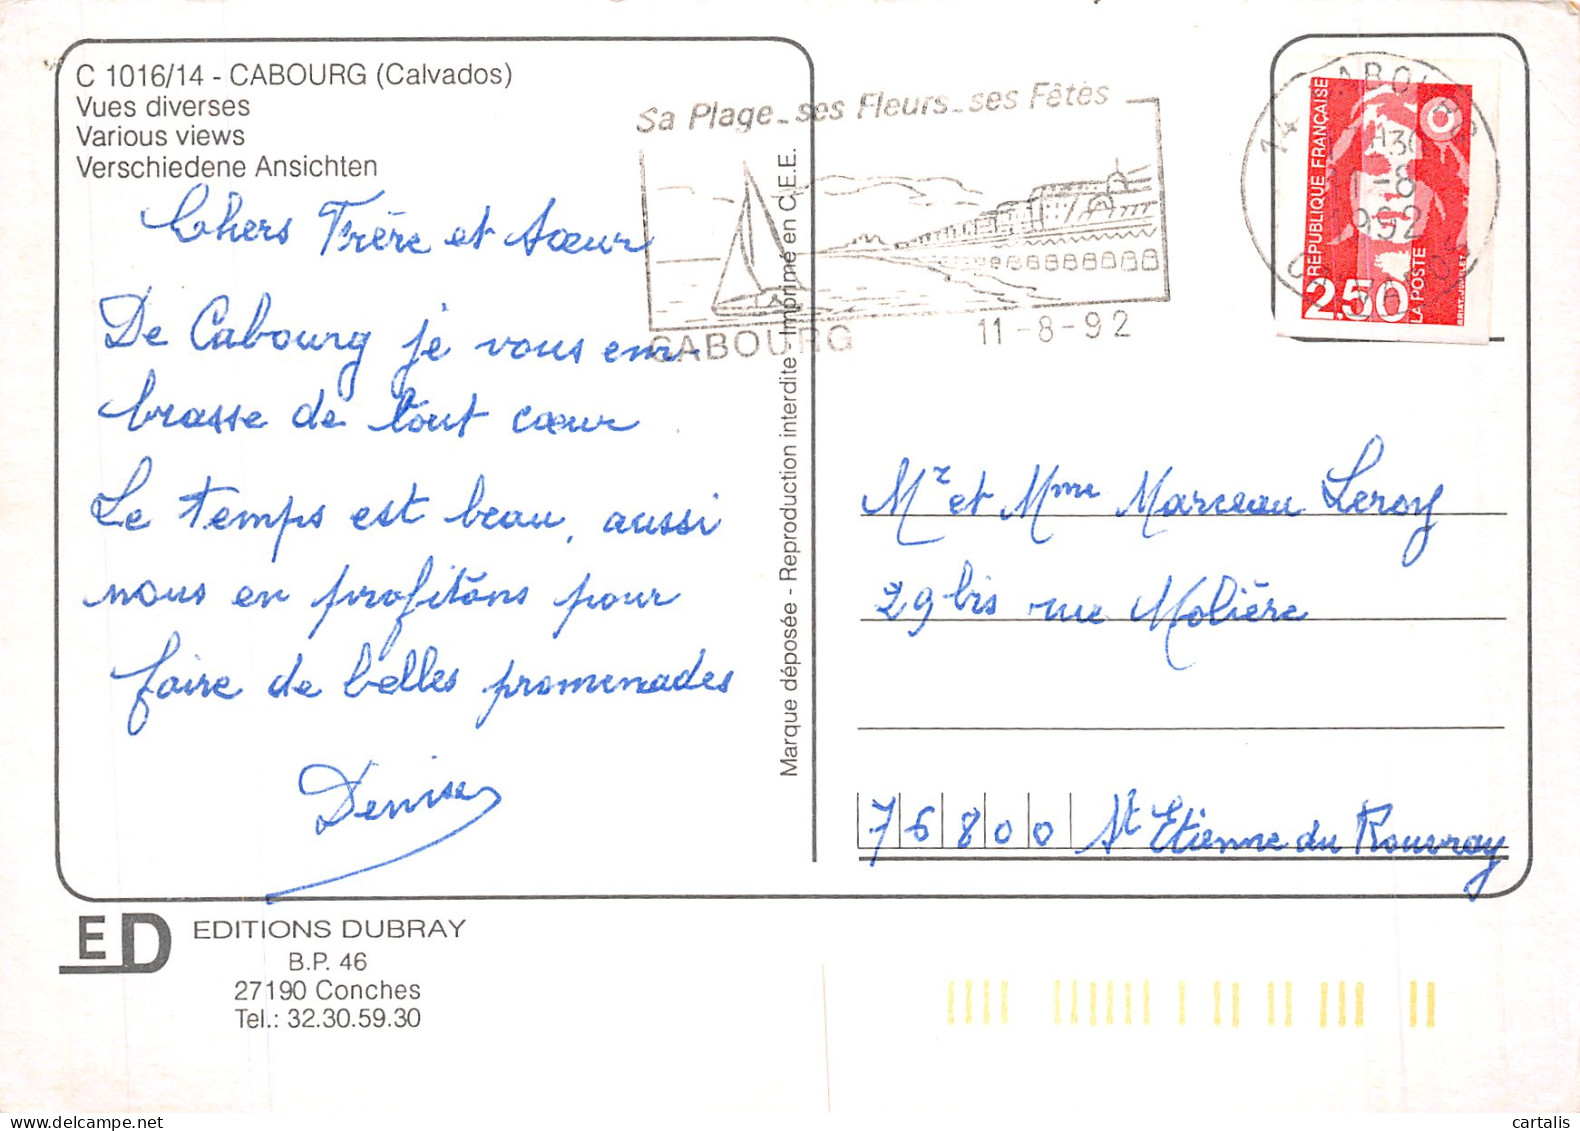 C 1016/14 - CABOURG (Calvados)
Vues diverses
Various views
Verschiedene Ansichten
Chers Frère et Sœur
De Cabourg je vous em-
brasse de tout cœur
Le temps est beau, aussi
nous en profitons pour
faire de belles promenades
Denise
Sa Plage_ses Fleurs_ses Fêtes
CABOURG
11-8-92
Marque déposée - Reproduction interdite - Imprimé en C.E.E.
14 CABOURG
H30
11-8
1992
CALVADOS
RÉPUBLIQUE FRANÇAISE
2,50
LA POSTE
BRIAT-JUMELET
Mr et Mme Marceau Leroy
29 bis rue Molière
76800 St Etienne du Rouvray
ED
EDITIONS DUBRAY
B.P. 46
27190 Conches
Tel.: 32.30.59.30
cartalis